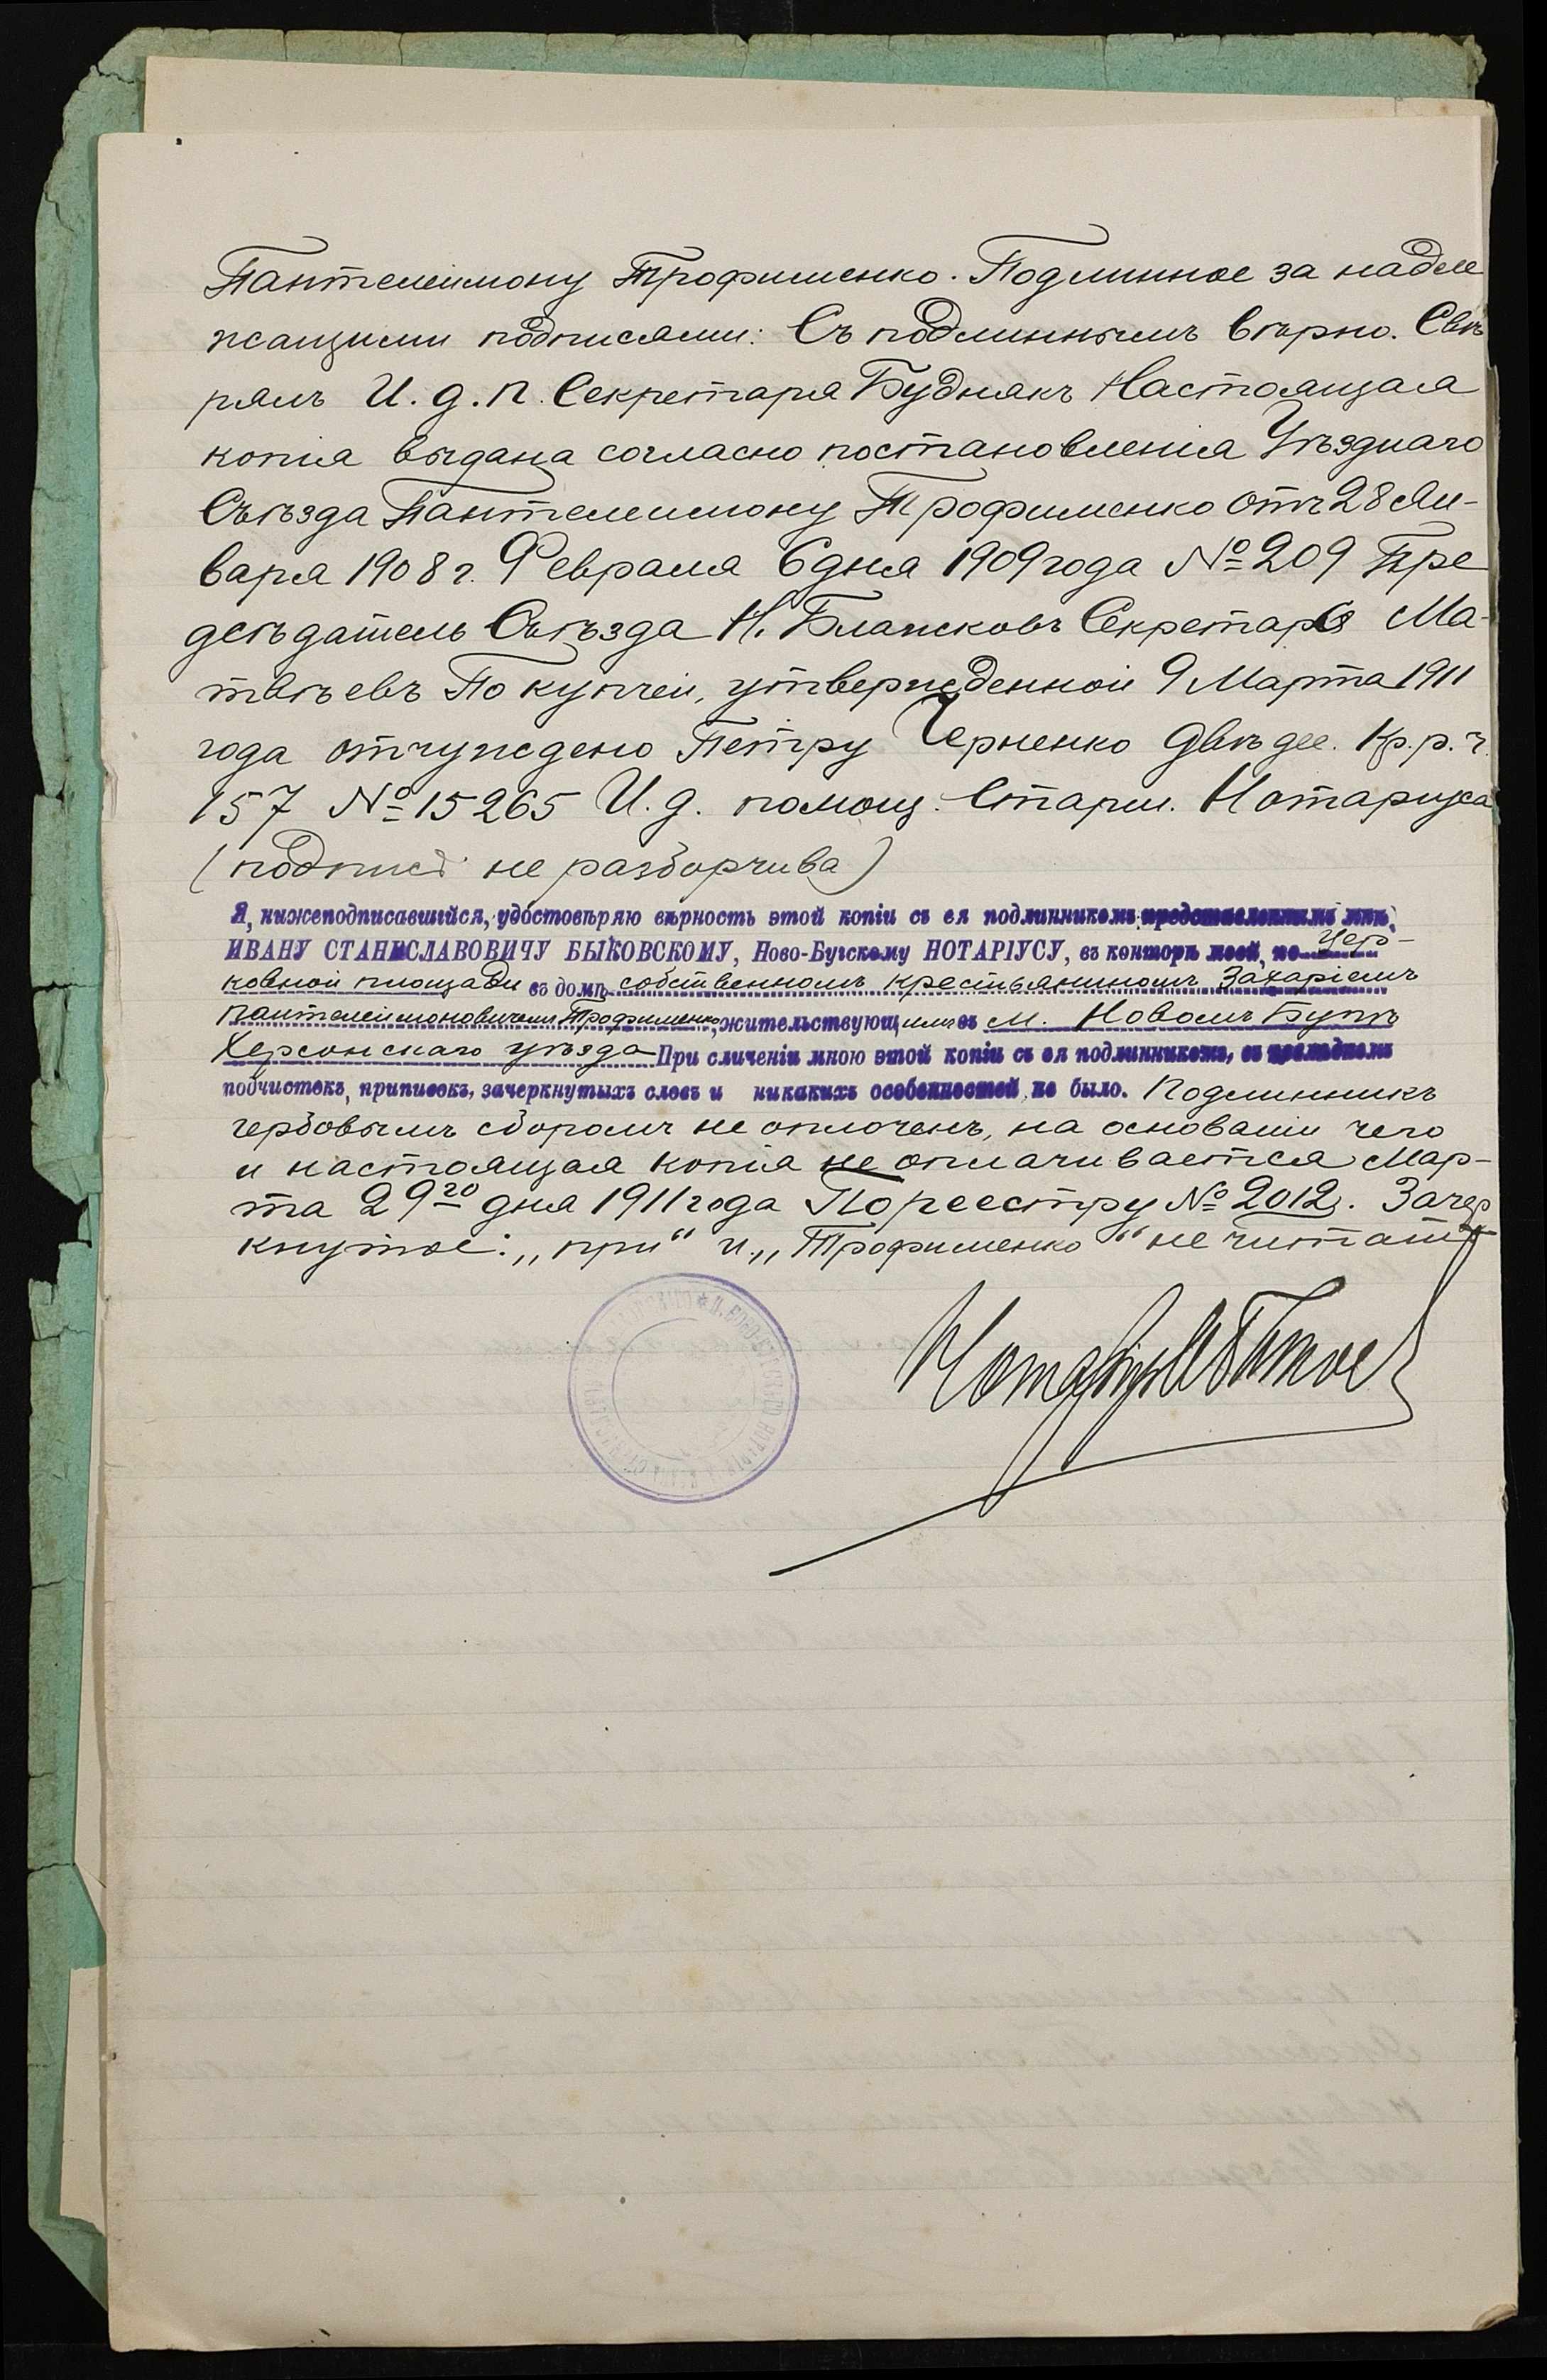 Пантелеимону Трофименко. Подлинное за надле
жащими подписями: Съ подлиннымъ вѣрно. Свѣ
рялъ И. д. п. Секретаря Буднякъ Настоящая
копія выдана согласно постановленія Уѣзднаго
Съѣзда Пантелеимону Трофименко отъ 28 Ян-
варя 1908 г. Февраля 6 дня 1909 года № 209 Пре
дсѣдатель Съѣзда Н. Блажковъ Секретарь Ма-
твѣевъ По купчей, утвержденной 9 Марта 1911
года отчуждено Петру Черненко двѣ дес. Кр. р. ч.
157 № 15265 И. д. помощ. Старш. Нотаріуса
(подпись не разборчива)
Я, нижеподписавшійся, удостовѣряю вѣрность этой копіи съ ея подлинникомъ представленнымъ мнѣ,
ИВАНУ СТАНИСЛАВОВИЧУ БЫКОВСКОМУ, Ново-Бугскому НОТАРІУСУ, въ конторѣ моей, по Цер-
ковной площади въ домѣ собственномъ крестьяниномъ Захаріемъ
Пантелеимоновичемъ Трофименко, жительствующимъ въ м. Новомъ Бугѣ
Херсонскаго уѣзда При сличеніи мною этой копіи съ ея подлинникомъ, въ
подчистокъ, приписокъ, зачеркнутыхъ словъ и никакихъ особенностей не было. Подлинникъ
гербовымъ сборомъ не оплоченъ, на основаніи чего
и настоящая копія не оплачивается Мар-
та 29го дня 1911 года По реестру № 2012. Зачер
кнутое: „при“ и „Трофименко“ не читать
Нотаріусъ